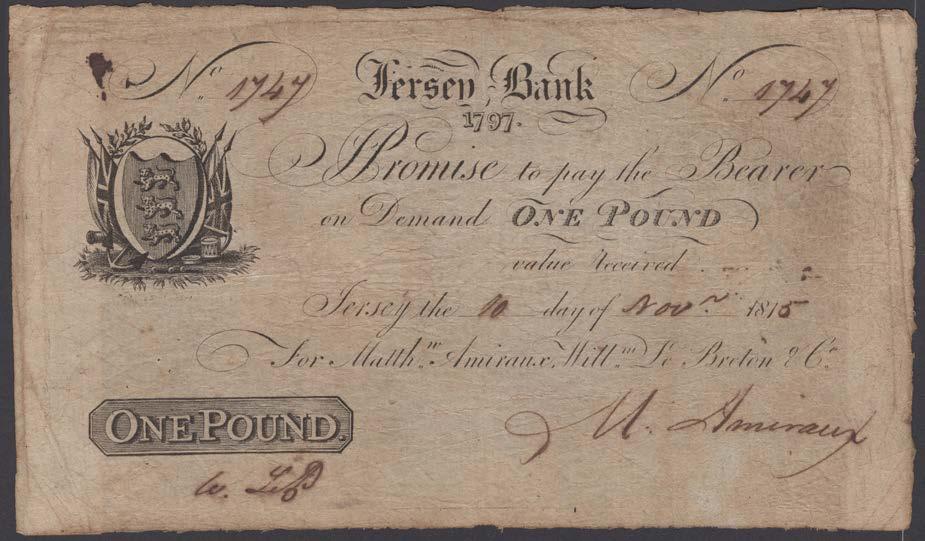 No. 1747 Jersey Bank No. 1747
1797.
I Promise to pay the Bearer
on Demand ONE POUND
value received
Jersey the 10 day of Novr. 1815
For Matthw. Amiraux, Willm. Le Breton & Co.
ONE POUND.
M. Amiraux
W. LeB